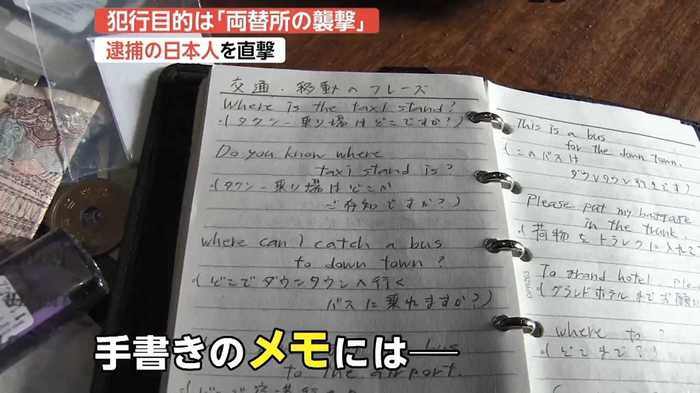 犯行目的は「両替所の襲撃」
逮捕の日本人を直撃
交通・移動のフレーズ
Where is the taxi stand?
(タクシー乗り場はどこですか?)
Do you know where
taxi stand is?
(タクシー乗り場はどこか
ご存知ですか?)
where can I catch a bus
to down town?
(どこでダウンタウンへ行く
バスに乗れますか?)
bus
to the airport.
This is a bus
for the down town.
(このバスは
ダウンタウン行きです)
Please put my
in the trunk.
荷物をトランクに入れて
To grand hotel, ple
(グランドホテルまでお願
where to?
(どこまで?)
手書きのメモには──